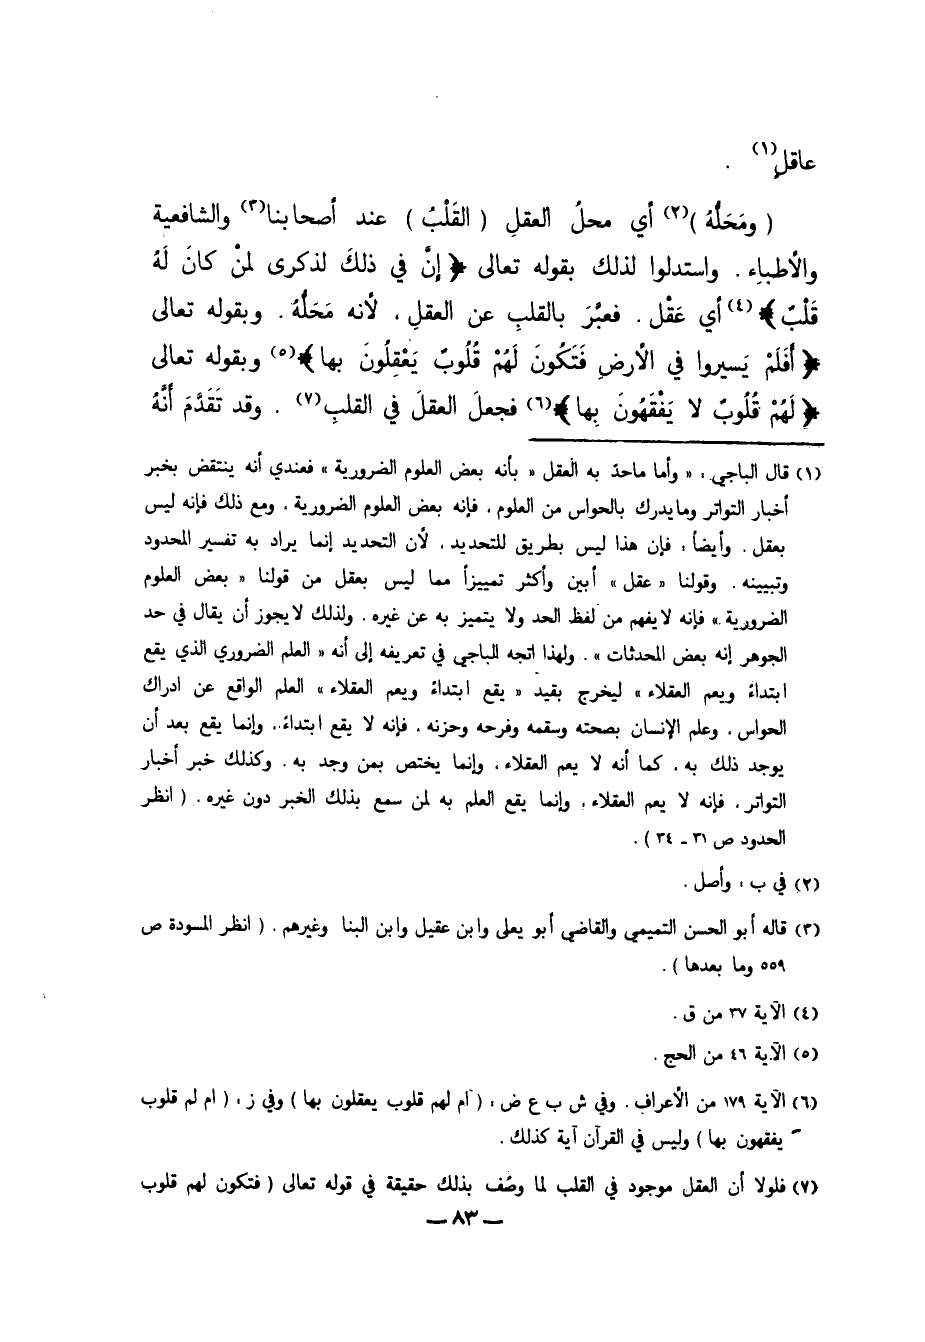 عاقلٍ(١) .
( ومَحَلُّهُ )(٢) أي محلُ العقلِ ( القَلْبُ ) عند أصحابنا(٣) والشافعية
والأطباءِ . واستدلوا لذلك بقوله تعالى ﴿ إنَّ في ذلكَ لذكرى لمنْ كانَ لَهُ
قَلْبٌ ﴾(٤) أي عَقْل . فعبَّرَ بالقلبِ عن العقلِ ، لأنه مَحَلُّهُ . وبقوله تعالى
﴿ أَفَلَمْ يَسيروا في الأرضِ فَتَكُونَ لَهُمْ قُلُوبٌ يَعْقِلُونَ بها ﴾(٥) وبقوله تعالى
﴿ لَهُمْ قُلُوبٌ لا يَفْقَهُونَ بِها ﴾(٦) فجعلَ العقلَ في القلبِ(٧) . وقد تَقَدَّمَ أنَّهُ
(١) قال الباجي : « وأما ماحدّ به العقل « بأنه بعض العلوم الضرورية » فعندي أنه ينتقض بخبر
أخبار التواتر ومايدرك بالحواس من العلوم ، فإنه بعض العلوم الضرورية ، ومع ذلك فإنه ليس
بعقل . وأيضاً : فإن هذا ليس بطريق للتحديد ، لأن التحديد إنما يراد به تفسير المحدود
وتبيينه . وقولنا « عقل » أبين وأكثر تمييزاً مما ليس بعقل من قولنا « بعض العلوم
الضرورية » فإنه لايفهم من لفظ الحد ولا يتميز به عن غيره . ولذلك لايجوز أن يقال في حد
الجوهر إنه بعض المحدثات » . ولهذا اتجه الباجي في تعريفه إلى أنه « العلم الضروري الذي يقع
ابتداءً ويعم العقلاء » ليخرج بقيد « يقع ابتداءً ويعم العقلاء » العلم الواقع عن ادراك
الحواس ، وعلم الإنسان بصحته وسقمه وفرحه وحزنه ، فإنه لا يقع ابتداءً ، وإنما يقع بعد أن
يوجد ذلك به ، كما أنه لا يعم العقلاء ، وإنما يختص بمن وجد به . وكذلك خبر أخبار
التواتر ، فإنه لا يعم العقلاء ، وإنما يقع العلم به لمن سمع بذلك الخبر دون غيره . ( انظر
الحدود ص ٣١ ـ ٣٤ ) .
(٢) في ب : وأصل .
(٣) قاله أبو الحسن التميمي والقاضي أبو يعلى وابن عقيل وابن البنا وغيرهم . ( انظر المسودة ص
٥٥٩ وما بعدها ) .
(٤) الآية ٣٧ من ق .
(٥) الآية ٤٦ من الحج .
(٦) الآية ١٧٩ من الأعراف . وفي ش ب ع ض : ( أم لهم قلوب يعقلون بها ) وفي ز : ( ام لم قلوب
يفقهون بها ) وليس في القرآن آية كذلك .
(٧) فلولا أن العقل موجود في القلب لما وصُف بذلك حقيقة في قوله تعالى ( فتكون لهم قلوب
ـ ٨٣ ـ